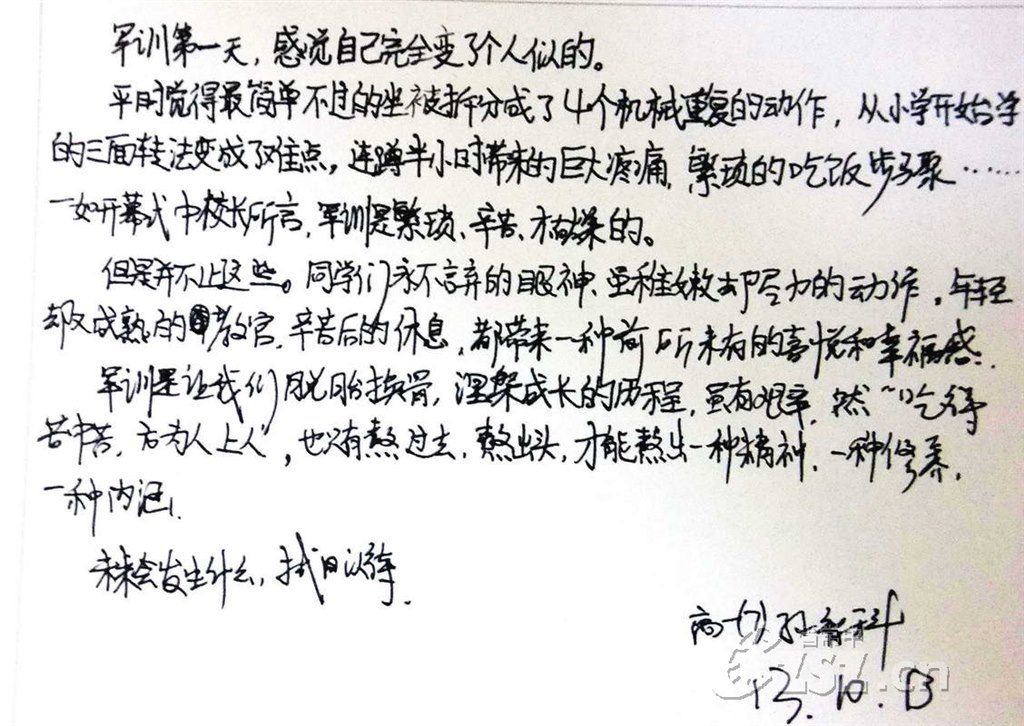 军训第一天，感觉自己完全变了个人似的。
平时觉得最简单不过的坐被拆分成了4个机械重复的动作，从小学开始学
的三面转法变成了难点，连蹲半小时带来的巨大疼痛，繁琐的吃饭步骤……
一如开幕式中校长所言，军训是繁琐、辛苦、枯燥的。
但是并不止这些。同学们永不言弃的眼神、虽稚嫩却尽力的动作，年轻
却又成熟的教官，辛苦后的休息，都带来一种前所未有的喜悦和幸福感。
军训是让我们脱胎换骨，涅槃成长的历程，虽有艰辛，然“吃得
苦中苦，方为人上人”，也只有熬过去，熬出头，才能熬出一种精神，一种修养，
一种内涵。
未来会发生什么，拭目以待。
高一(7) 孙 科
13.10.13
.cn